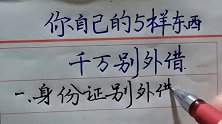 你自己的5样东西
千万别外借
一.身份证别外借